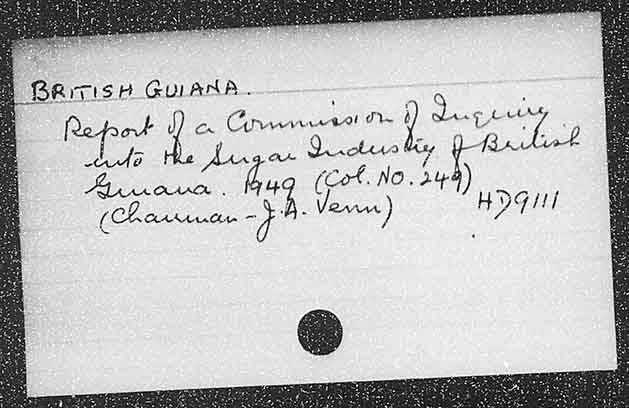 BRITISH GUIANA.
Report of a Commission of Inquiry
into the Sugar Industry of British
Guiana. 1949 (Col. No. 249)
(Chairman - J.A. Venn) HD9111